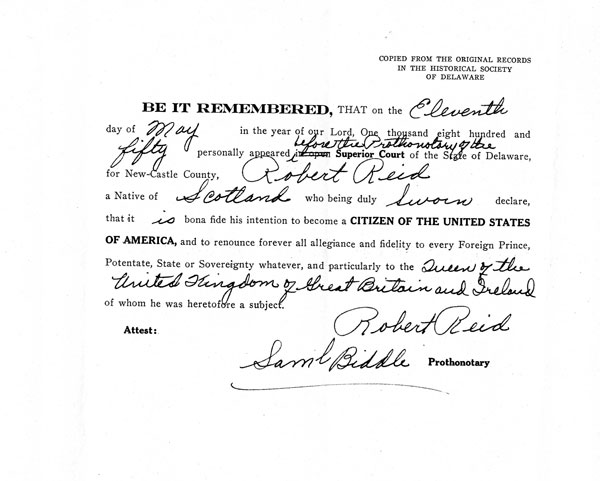 COPIED FROM THE ORIGINAL RECORDS
IN THE HISTORICAL SOCIETY
OF DELAWARE
BE IT REMEMBERED, THAT on the Eleventh
day of May in the year of our Lord, One thousand eight hundred and
fifty personally appeared before the Prothonotary of the Superior Court of the State of Delaware,
for New-Castle County, Robert Reid
a Native of Scotland who being duly Sworn declare,
that it is bona fide his intention to become a CITIZEN OF THE UNITED STATES
OF AMERICA, and to renounce forever all allegiance and fidelity to every Foreign Prince,
Potentate, State or Sovereignty whatever, and particularly to the Queen of the
United Kingdom of Great Britain and Ireland
of whom he was heretofore a subject.
Robert Reid
Attest:
Saml Biddle Prothonotary